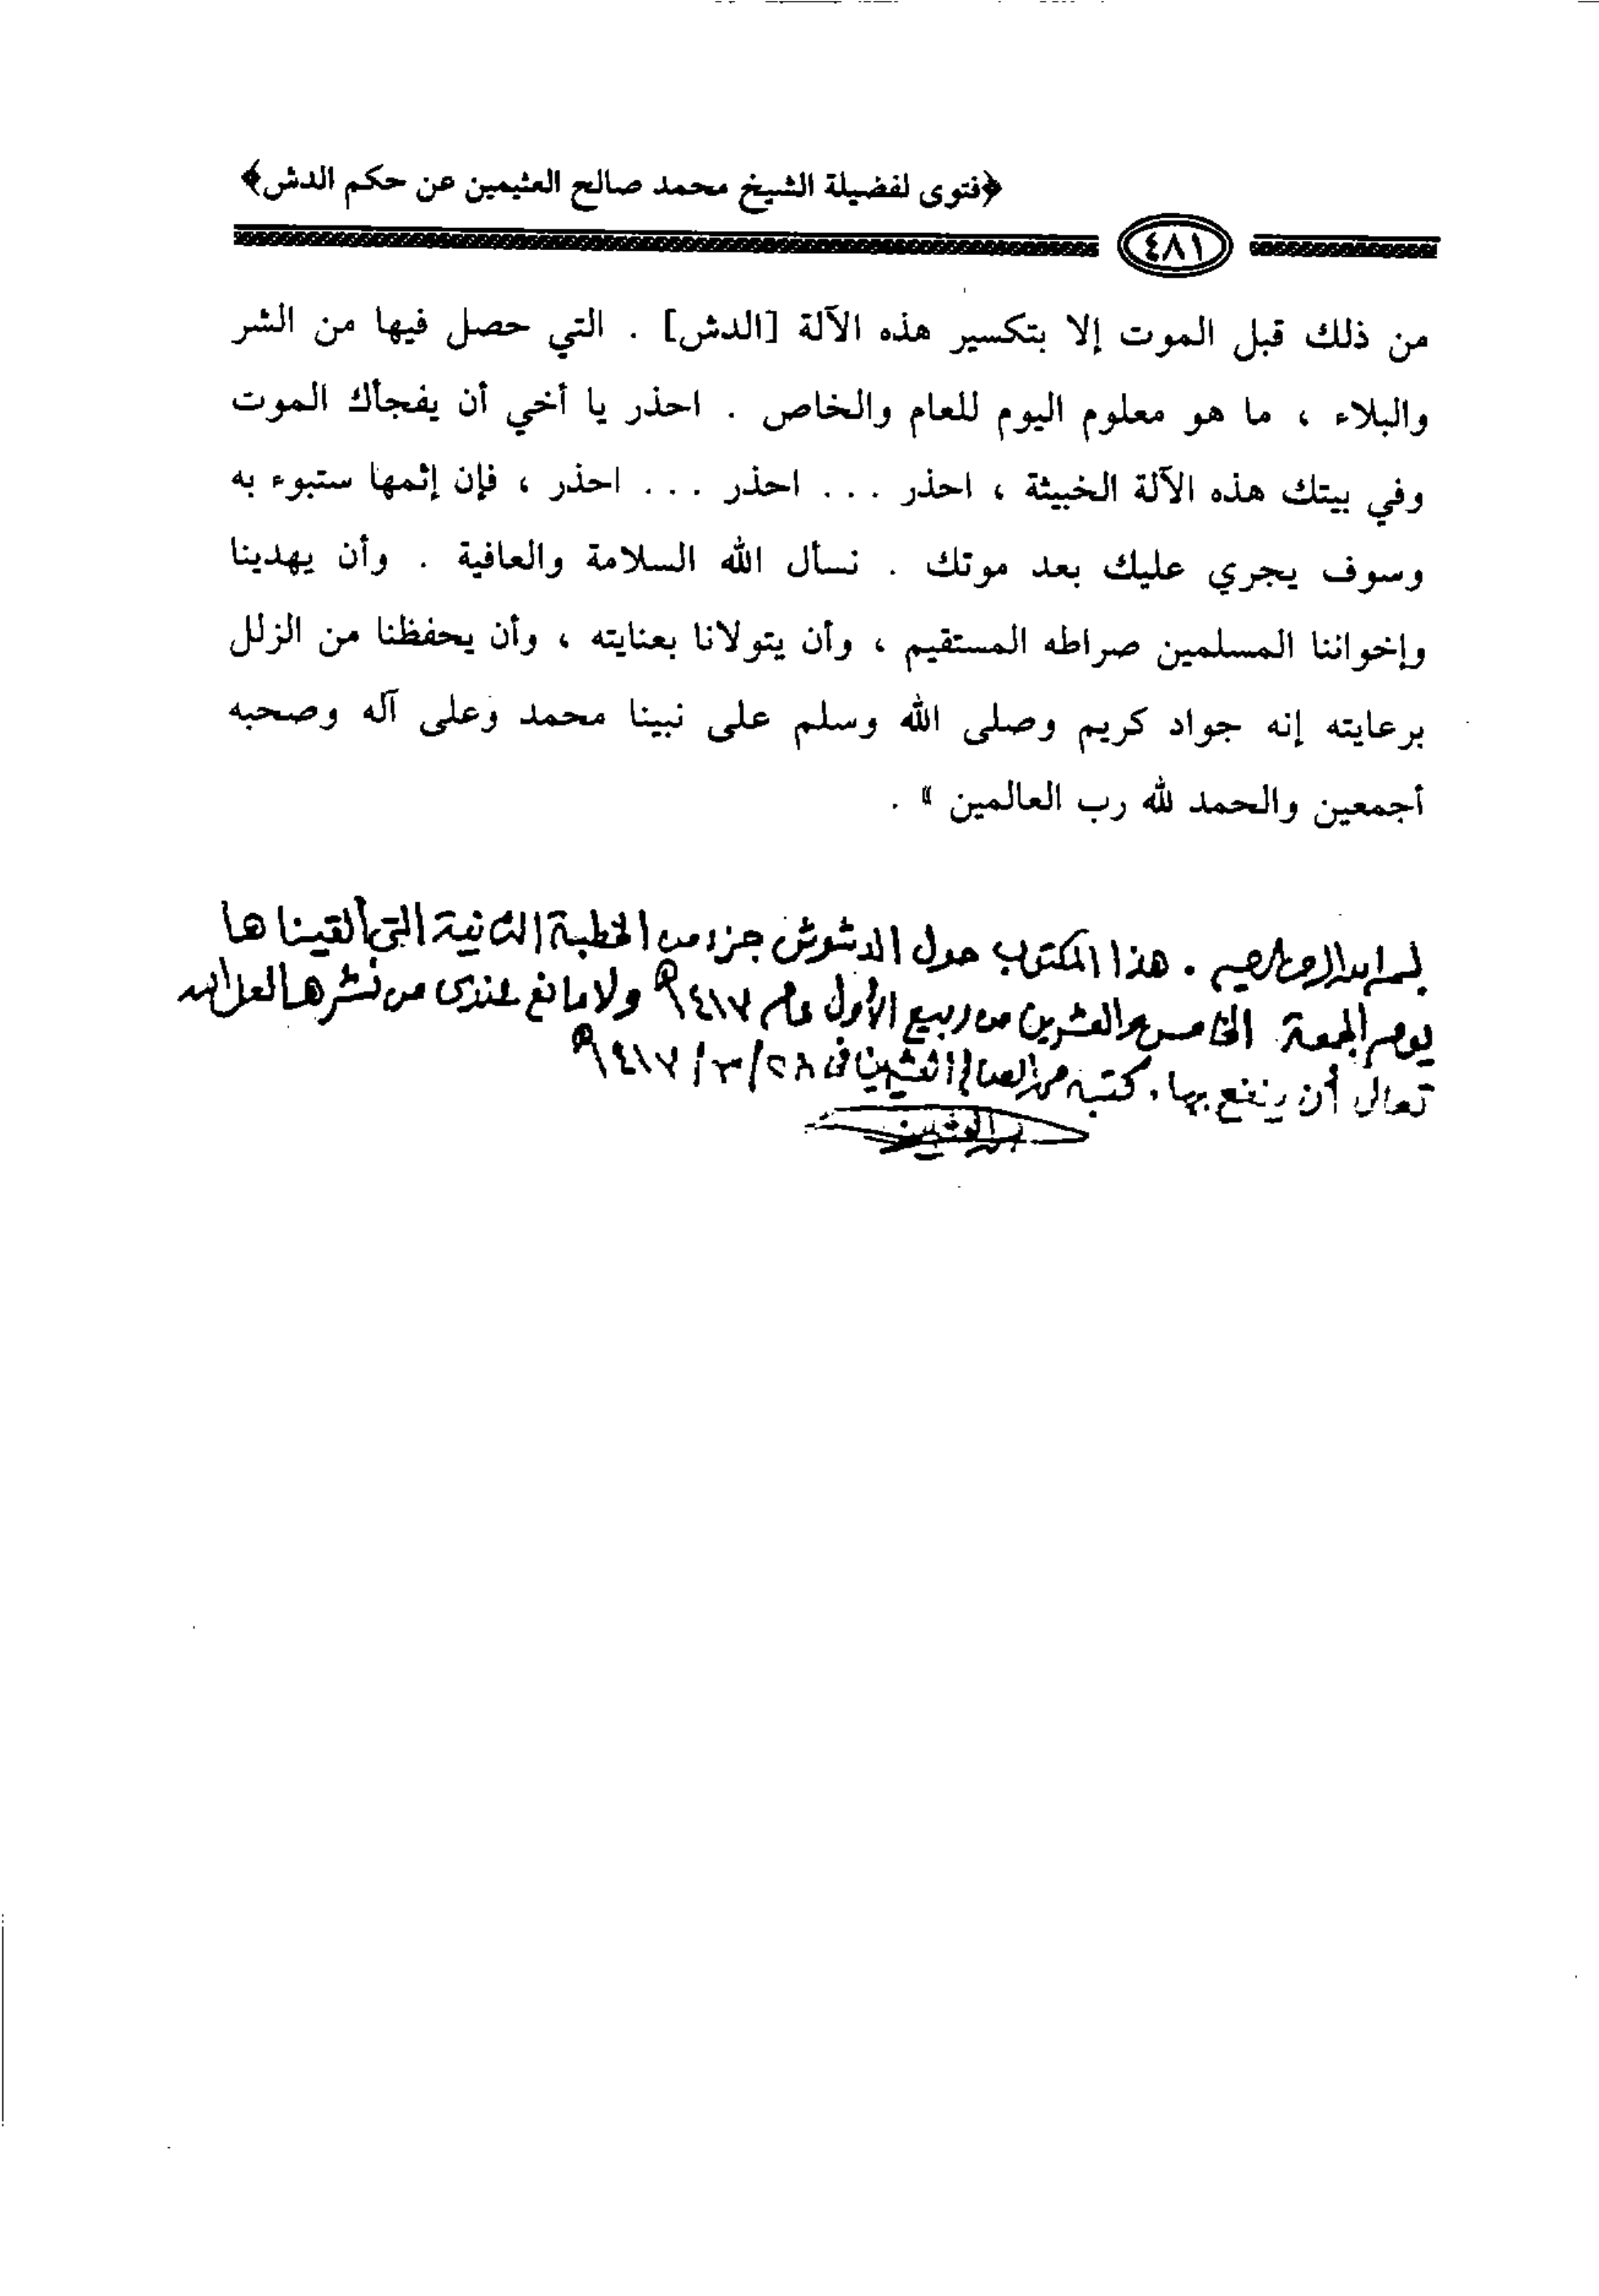 ﴿فتوى لفضيلة الشيخ محمد صالح العثيمين عن حكم الدش﴾
٤٨١
من ذلك قبل الموت إلا بتكسير هذه الآلة [الدش] . التي حصل فيها من الشر
والبلاء ، ما هو معلوم اليوم للعام والخاص . احذر يا أخي أن يفجأك الموت
وفي بيتك هذه الآلة الخبيثة ، احذر . . . احذر . . . احذر ، فإن إثمها ستبوء به
وسوف يجري عليك بعد موتك . نسأل الله السلامة والعافية . وأن يهدينا
وإخواننا المسلمين صراطه المستقيم ، وأن يتولانا بعنايته ، وأن يحفظنا من الزلل
برعايته إنه جواد كريم وصلى الله وسلم على نبينا محمد وعلى آله وصحبه
أجمعين والحمد لله رب العالمين » .
بسم الله الرحمن الرحيم . هذا المكتوب حول الدشوش جزء من الخطبة الثانية التي ألقيناها
يوم الجمعة الخامس والعشرين من ربيع الأول عام ١٤١٧هـ ولا مانع عندي من نشرها لعل الله
تعالى أن ينفع بها . كتبه محمد الصالح العثيمين في ٢٨/٣/١٤١٧هـ